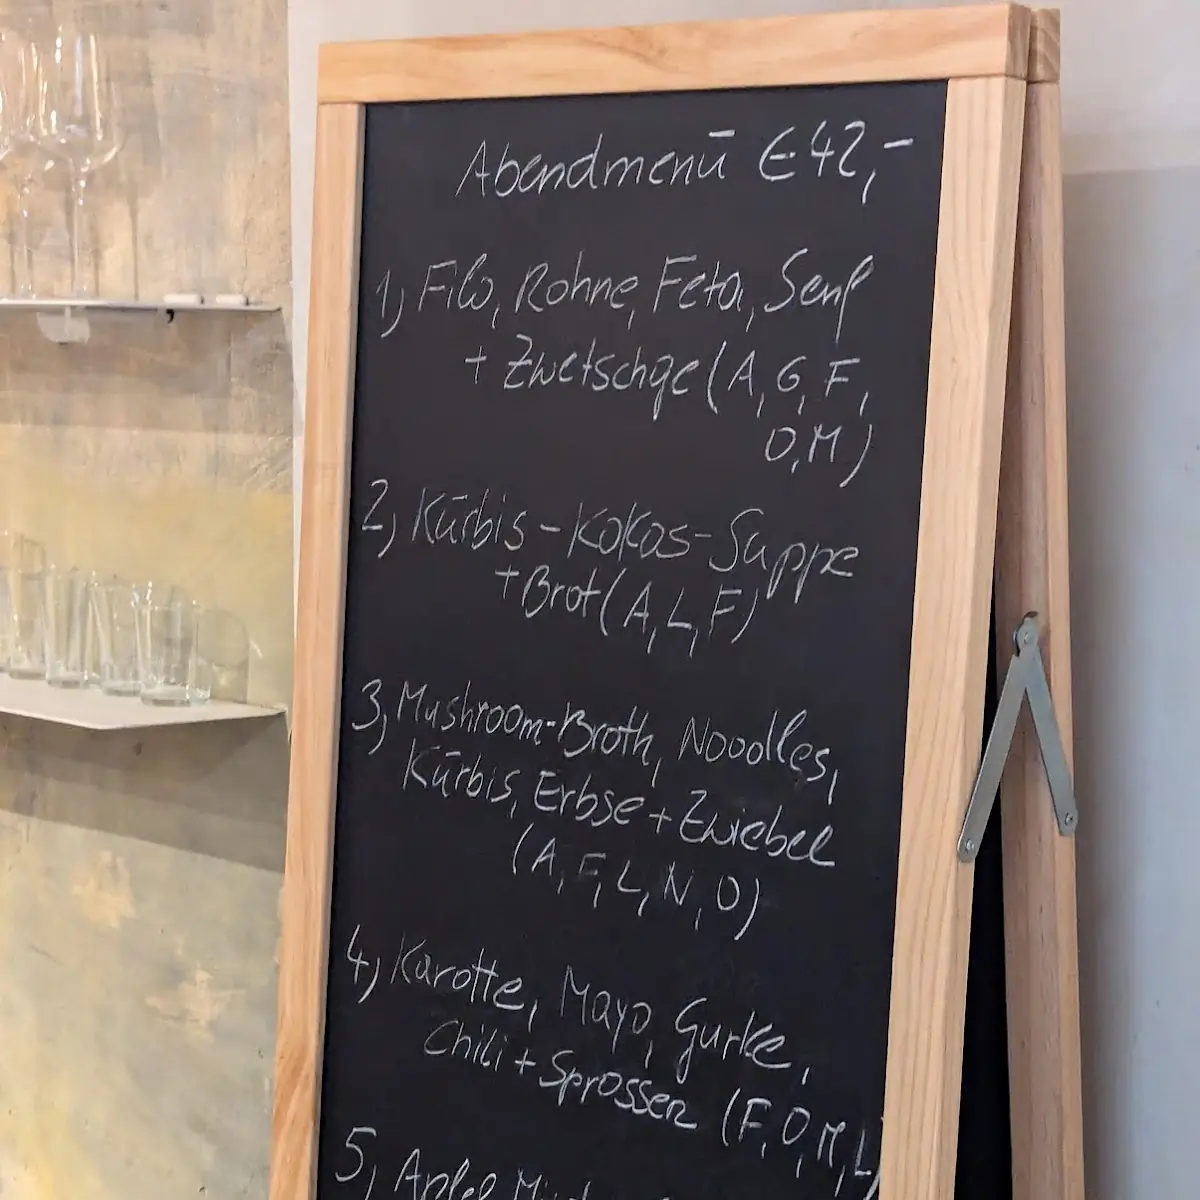 Abendmenü € 42,-
1, Filo, Rohne, Feta, Senf
+ Zwetschge (A, G, F,
O, M)
2, Kürbis-Kokos-Suppe
+ Brot (A, L, F)
3, Mushroom-Broth, Nooodles,
Kürbis, Erbse + Zwiebel
(A, F, L, N, O)
4, Karotte, Mayo, Gurke,
Chili + Sprossen (F, O, M, L)
5, Apfel